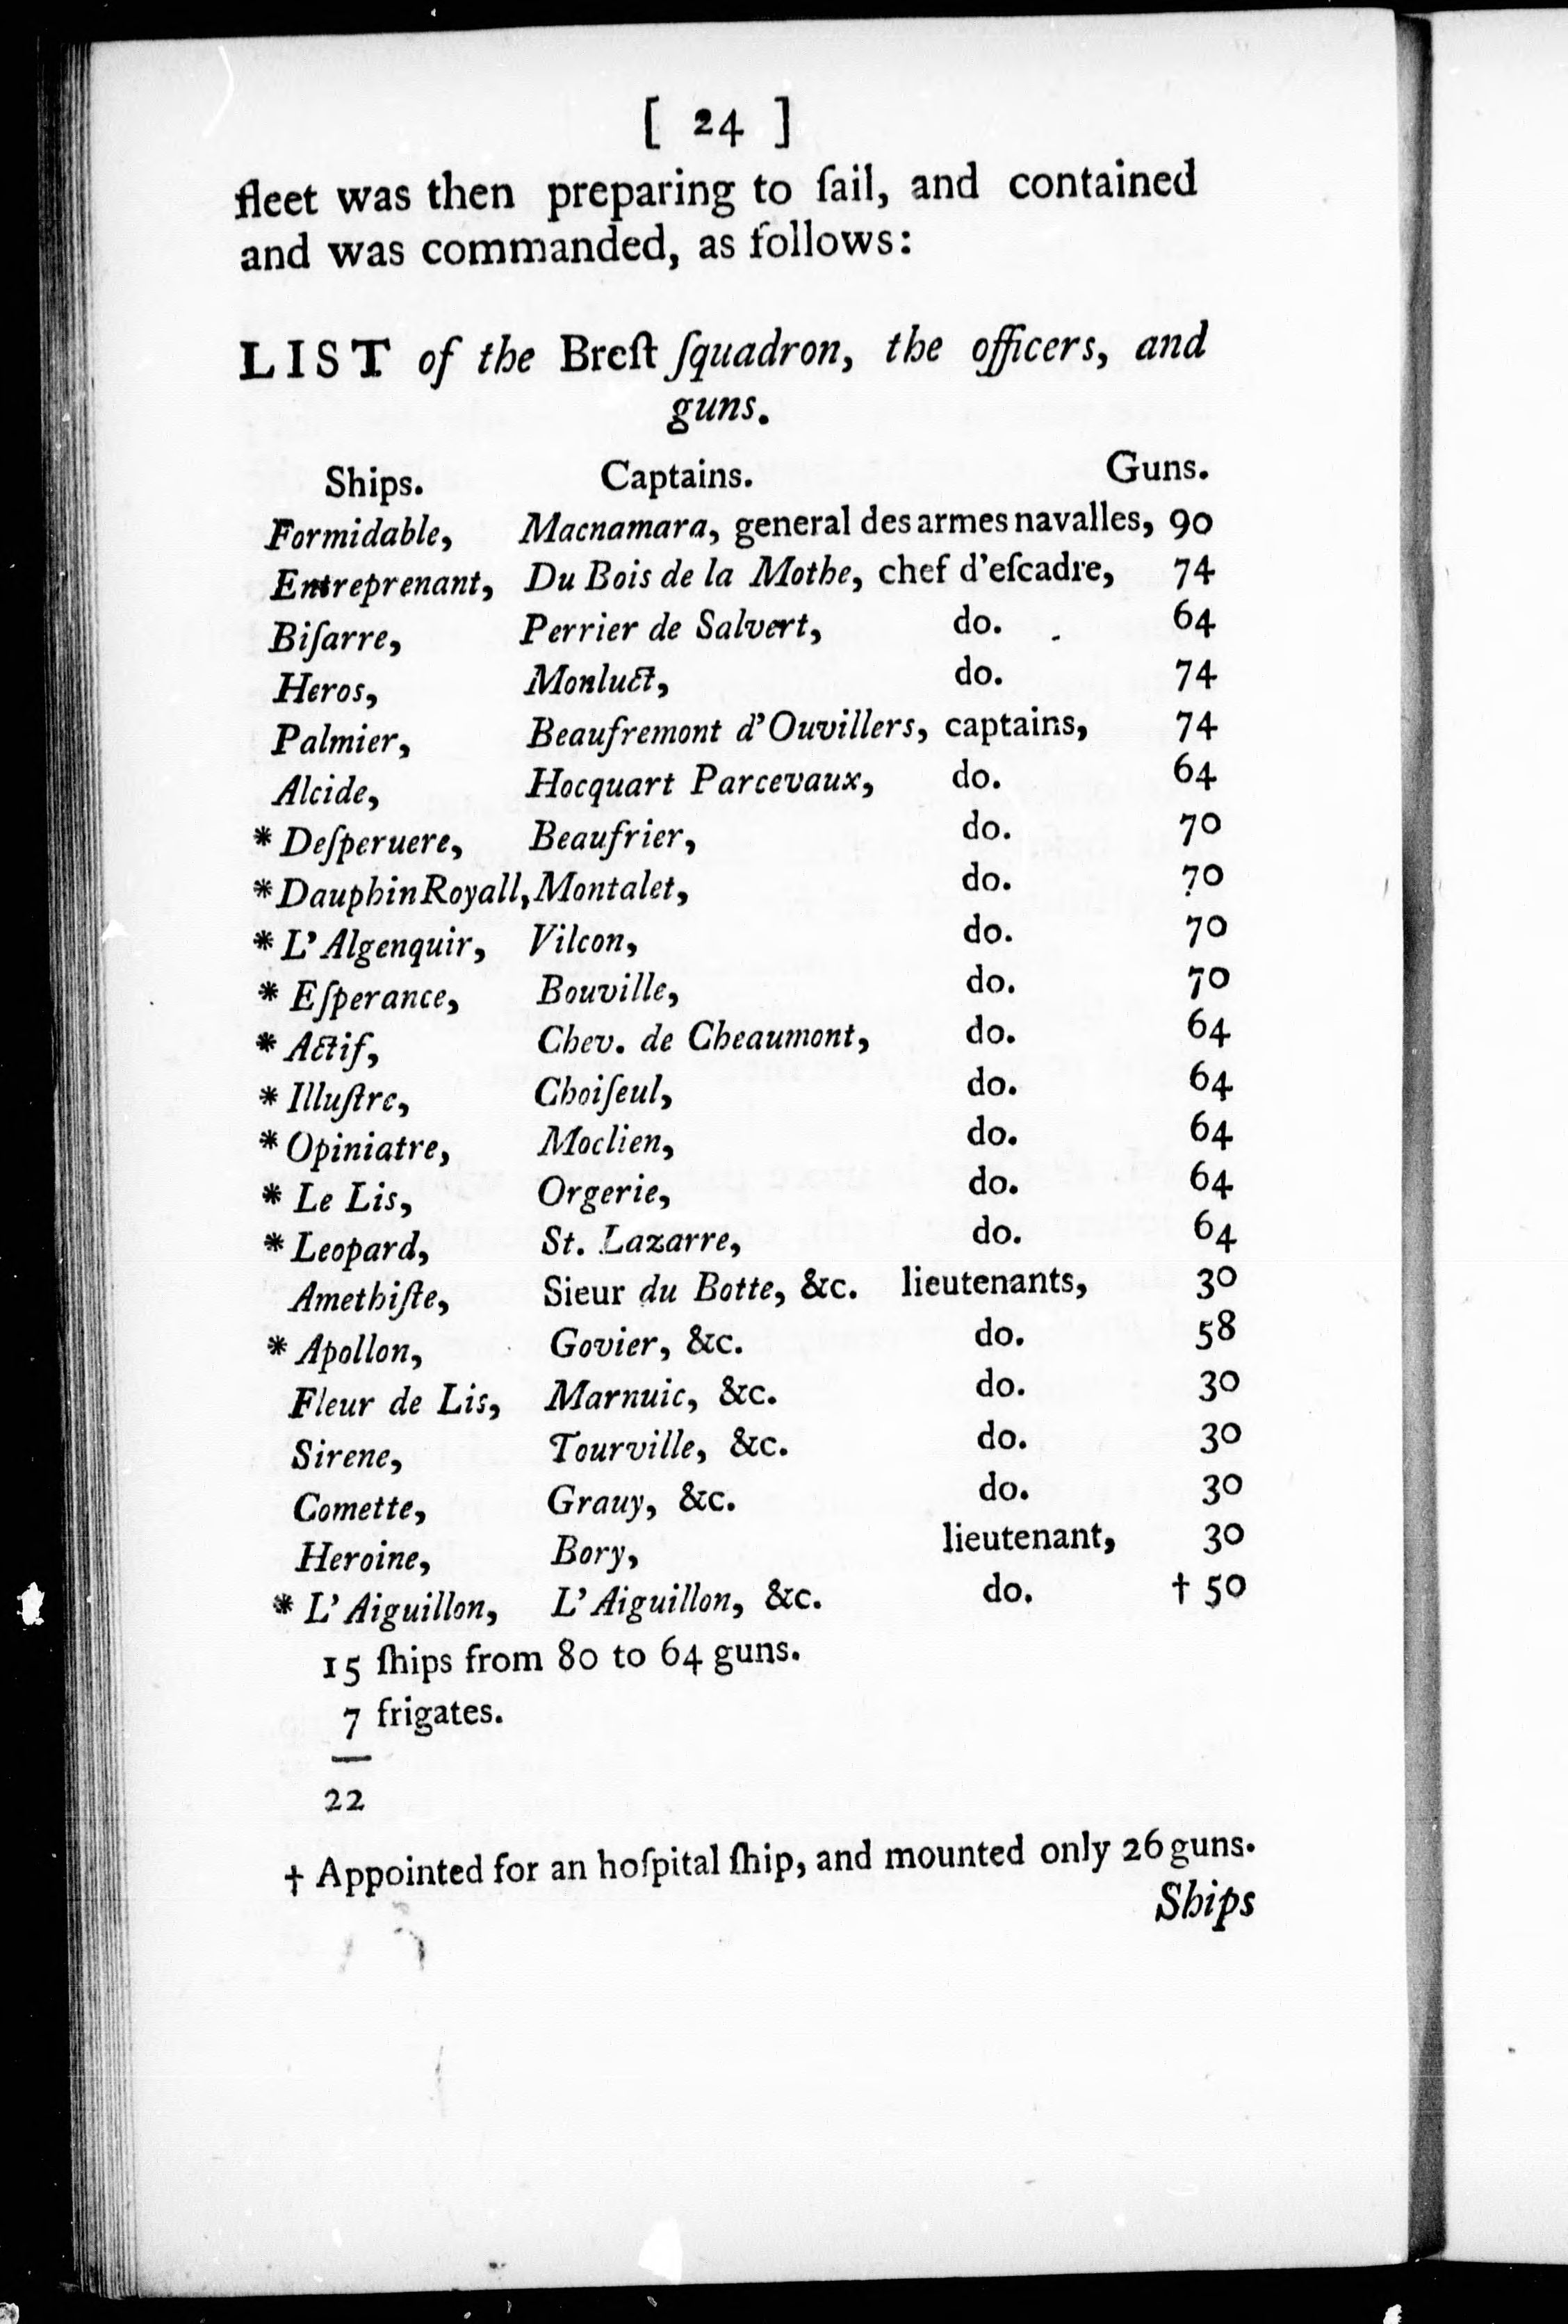 [ 24 ]
fleet was then preparing to ſail, and contained
and was commanded, as follows:
LIST of the Breſt ſquadron, the officers, and
guns.
Ships. Captains. Guns.
Formidable, Macnamara, general des armes navalles, 90
Entreprenant, Du Bois de la Mothe, chef d'eſcadre, 74
Biſarre, Perrier de Salvert, do. 64
Heros, Monluct, do. 74
Palmier, Beaufremont d'Ouvillers, captains, 74
Alcide, Hocquart Parcevaux, do. 64
* Deſperuere, Beaufrier, do. 70
* Dauphin Royall, Montalet, do. 70
* L'Algenquir, Vilcon, do. 70
* Eſperance, Bouville, do. 70
* Actif, Chev. de Cheaumont, do. 64
* Illuſtre, Choiſeul, do. 64
* Opiniatre, Moclien, do. 64
* Le Lis, Orgerie, do. 64
* Leopard, St. Lazarre, do. 64
Amethiſte, Sieur du Botte, &c. lieutenants, 30
* Apollon, Govier, &c. do. 58
Fleur de Lis, Marnuic, &c. do. 30
Sirene, Tourville, &c. do. 30
Comette, Grauy, &c. do. 30
Heroine, Bory, lieutenant, 30
* L'Aiguillon, L'Aiguillon, &c. do. † 50
15 ſhips from 80 to 64 guns.
7 frigates.
22
† Appointed for an hoſpital ſhip, and mounted only 26 guns.
Ships